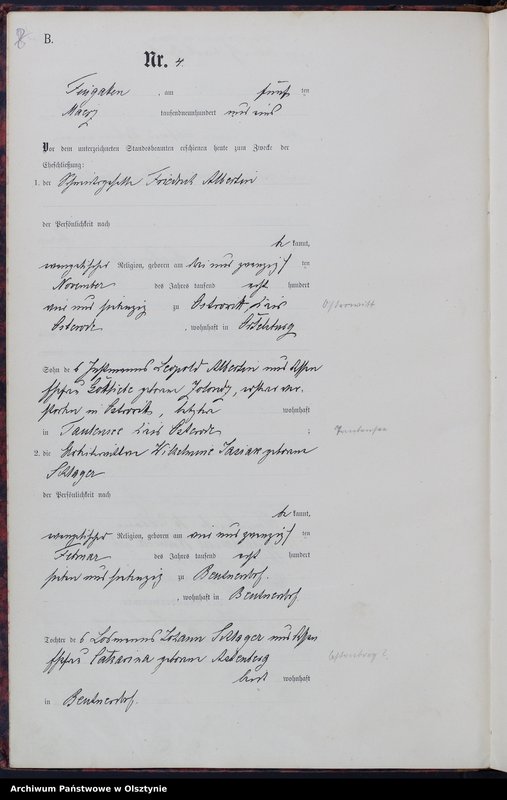 B.
Nr. 4.
, am fünf ten
Maerz tausendneunhundert und eins
Vor dem unterzeichneten Standesbeamten erschienen heute zum Zwecke der
Eheschließung:
1. der Friedrich Albertin
der Persönlichkeit nach
be kannt,
evangelischer Religion, geboren am drei und zwanzigs ten
November des Jahres tausend acht hundert
und siebenzig zu Osterwitt, Kreis
Osterode, wohnhaft in
Sohn des Leopold Albertin und dessen
Ehefrau Gottliebe geborene
storben in Osterwitt, letztere wohnhaft
in Taulensee Kreis Osterode
;
2. die Wilhelmine Jasiak geborene
Schlager
der Persönlichkeit nach
be kannt,
evangelischer Religion, geboren am zwanzigs ten
Februar des Jahres tausend acht hundert
sieben und siebenzig zu Beutnerdorf.
, wohnhaft in Beutnerdorf
Tochter des Losmanns Johann Schlager und dessen
Ehefrau Catharina geborene
beide wohnhaft
in Beutnerdorf.
Osterwitt
Archiwum Państwowe w Olsztynie